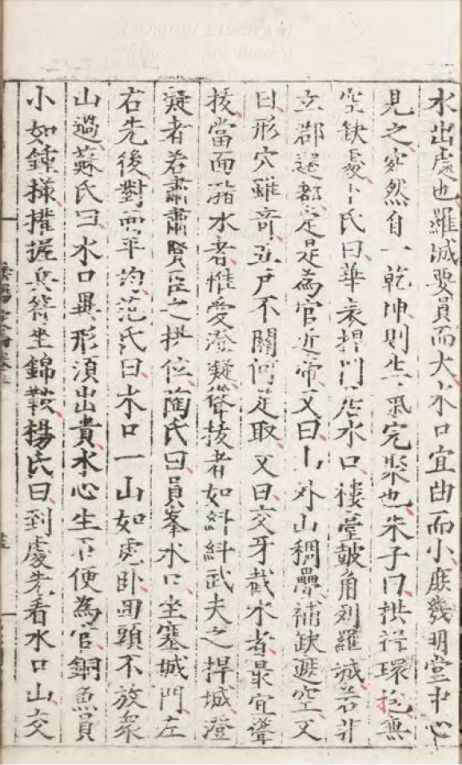 水出處也羅城要員而大水口宜曲而小庶幾明堂中心
見之宛然自一乾坤則生氣完聚也朱子曰拱揖環抱無
空缺處卜氏曰華表捍門居水口樓臺鼓角列羅城若非
立郡遷都定是為官近帝又曰外山稠疊補缺遮空又
曰形穴雖奇五戶不關何足取又曰交牙截水者最宜聳
拔當面瀦水者惟愛澄凝聳拔者如糾糾武夫之捍城澄
凝者若肅肅賢臣之拱位陶氏曰員峯水口坐塞城門左
右先後對面平均范氏曰水口一山如虎臥回頭不放衆
山過蘇氏曰水口異形須出貴水心生石便為官銅魚員
小如鍾樣權握兵符坐錦鞍楊氏曰到處先看水口山交